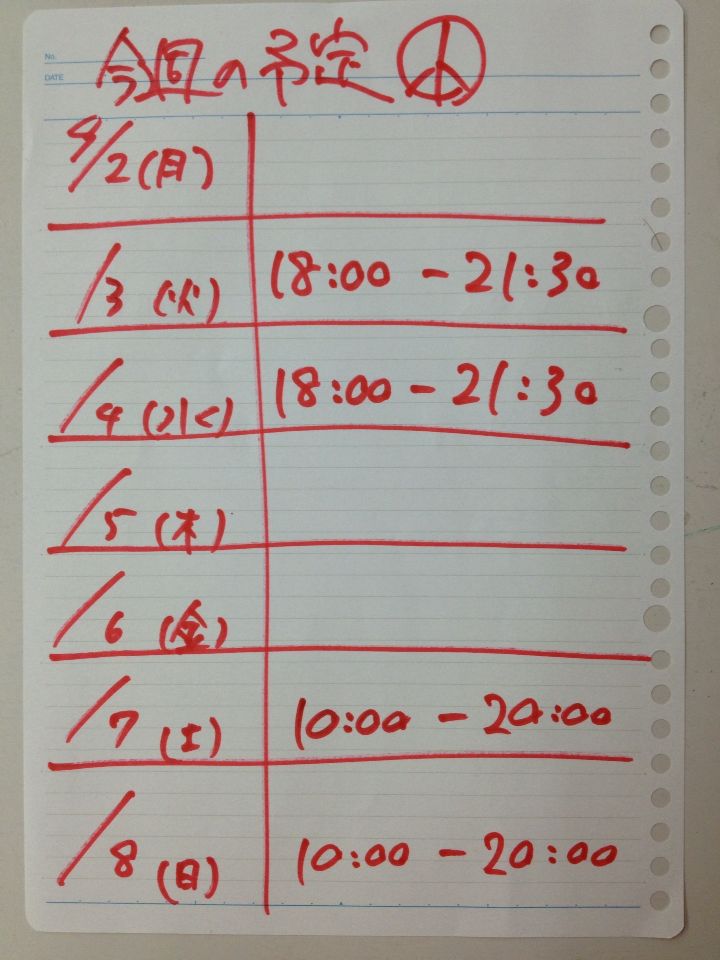 No.
DATE
今週の予定
9/2(月)
/3 (火) 18:00 - 21:30
/4 (水) 18:00 - 21:30
/5 (木)
/6 (金)
/7 (土) 10:00 - 20:00
/8 (日) 10:00 - 20:00